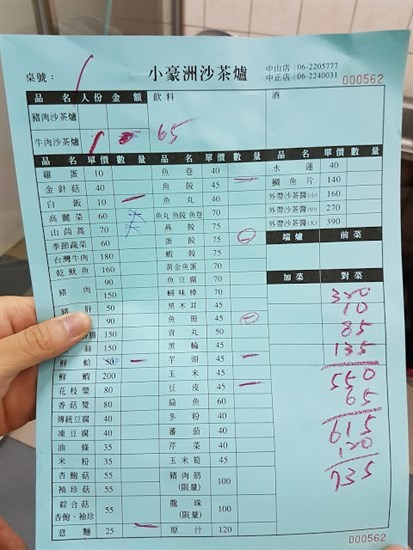 桌號：
小豪洲沙茶爐
中山店：06-2205777
中正店：06-2240031
000562
品名 人份 金額 飲料 酒
豬肉沙茶爐
牛肉沙茶爐 65
品名 單價 數量 品名 單價 數量 品名 單價 數量
雞蛋 10 魚卷 40 水蓮 40
金針菇 40 魚餃 45 鯛魚片 140
白飯 10 魚丸 40 外帶沙茶醬(小) 160
高麗菜 60 魚丸 魚餃 魚卷 70 外帶沙茶醬(中) 270
山茼蒿 70 燕餃 75 外帶沙茶醬(大) 390
季節蔬菜 60 蛋餃 75 端爐 前菜
台灣牛肉 180 蝦餃 75
乾魷魚 160 黃金魚蛋 70 加菜 對菜
豬肉 90 魚豆腐 70 320
150 蟳味棒 70 10
豬肝 50 黑木耳 45 85
90 魚冊 45 135
150 貢丸 50 550
150 黑輪 45 65
鮮蛤 50 芋頭 45 615
鮮蝦 200 玉米 45 120
花枝漿 80 豆皮 45 735
香菇漿 80 扁魚 60
傳統豆腐 40 冬粉 40
凍豆腐 40 蕃茄 40
油條 35 芹菜 40
米粉 35 玉米筍 45
杏鮑菇 55 豬肉筋(限量) 100
袖珍菇 55
綜合菇 杏鮑、袖珍 55 龍珠(限量) 100
意麵 25 原汁 120
000562